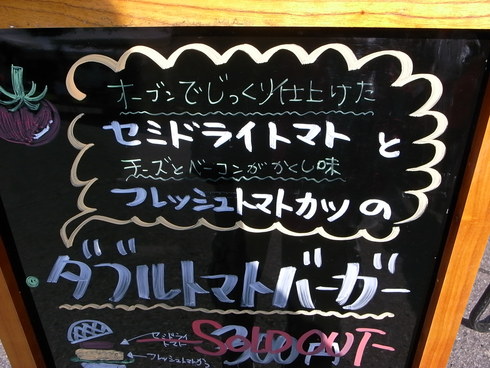 オーブンでじっくり仕上げた
セミドライトマトと
チーズとベーコンがかくし味
フレッシュトマトカツの
ダブルトマトバーガー
セミドライ
トマト
フレッシュトマトカツ
300円
SOLD OUT